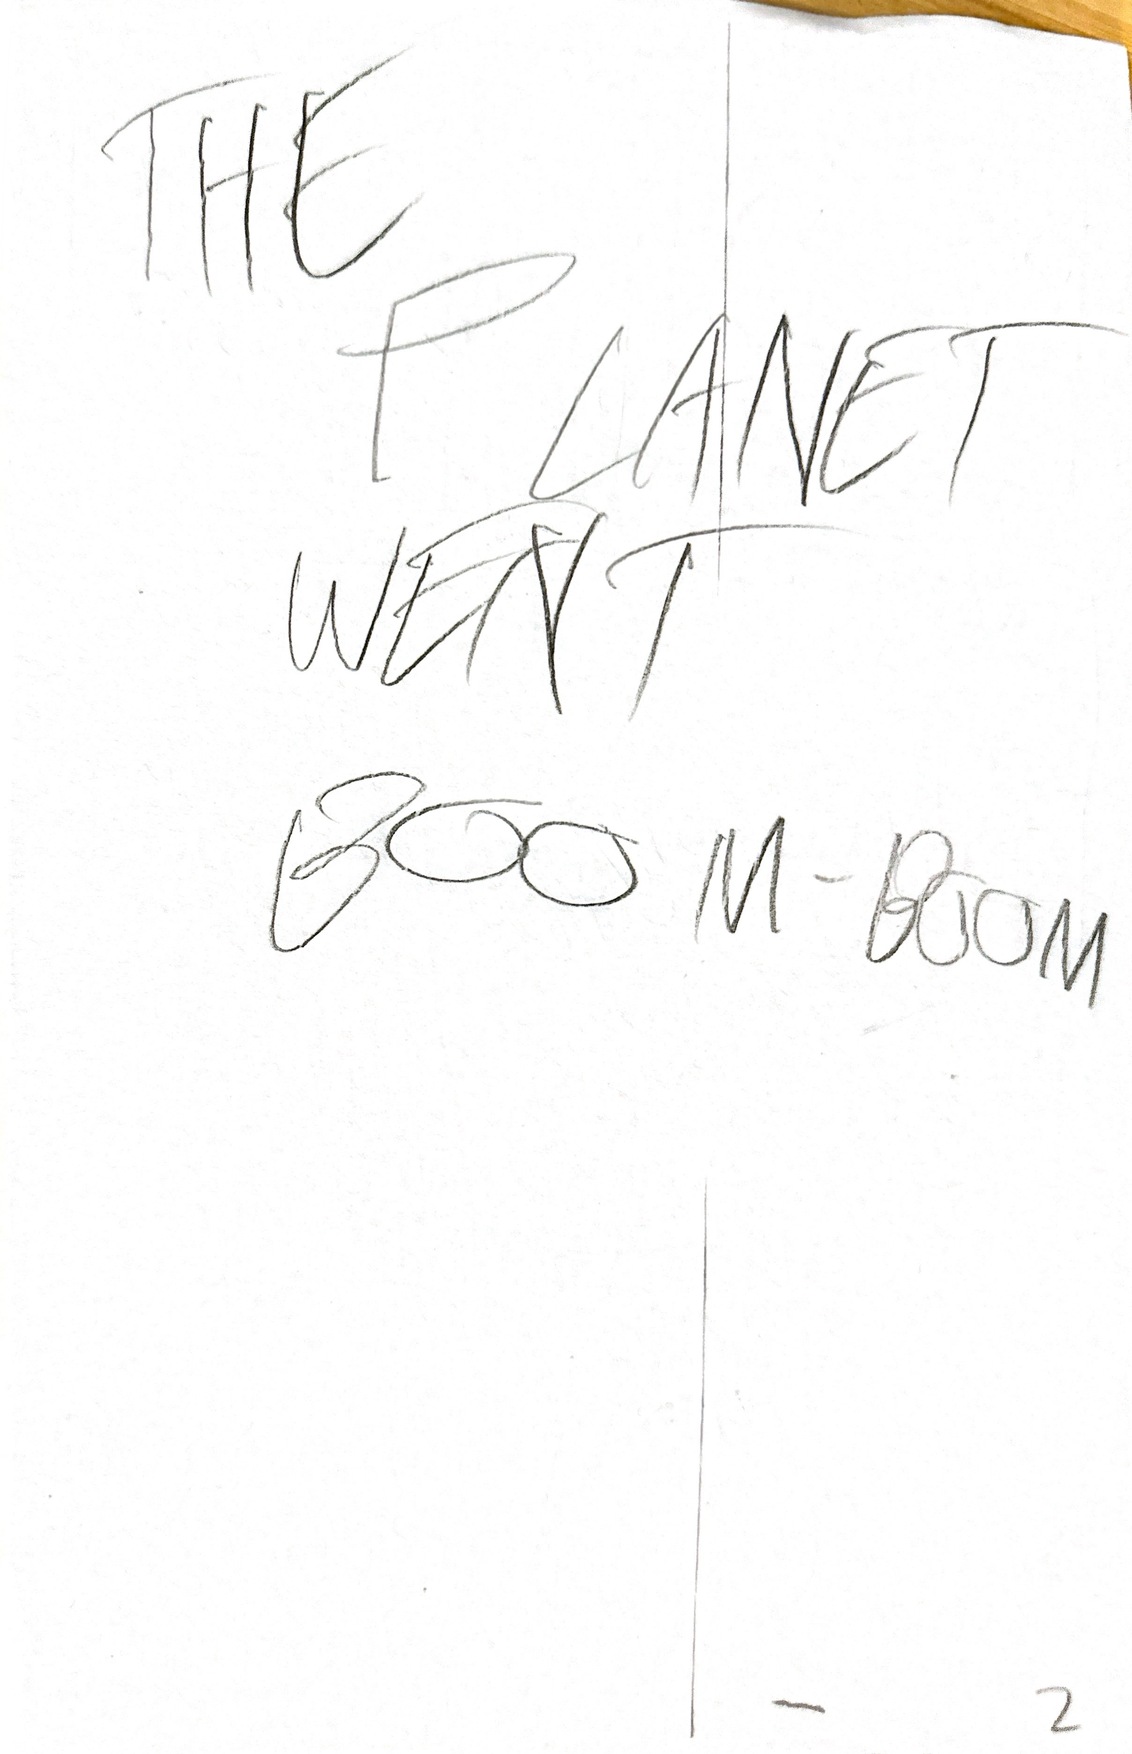 THE
PLANET
WENT
BOOM-BOOM
- 2